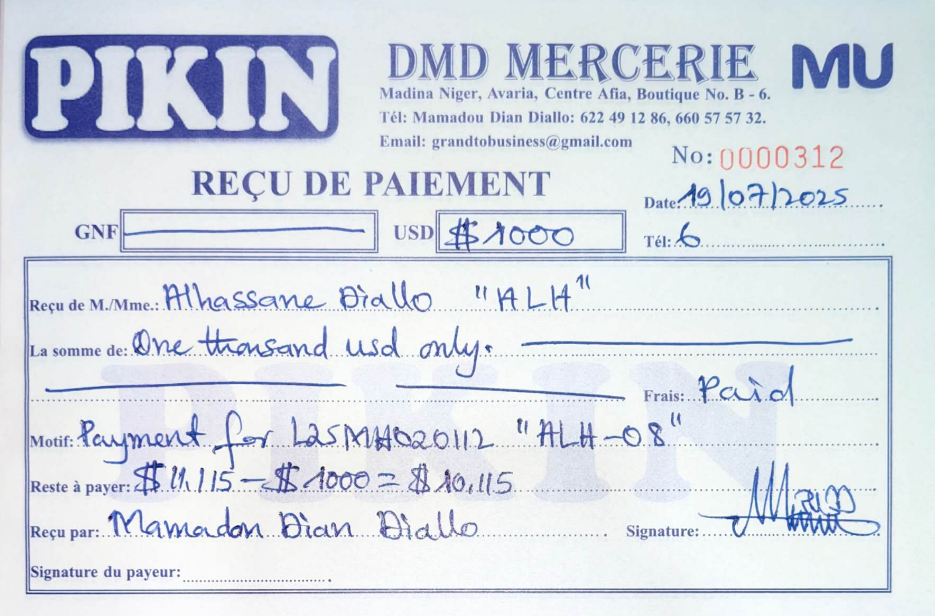 PIKIN
DMD MERCERIE MU
Madina Niger, Avaria, Centre Afia, Boutique No. B - 6.
Tél: Mamadou Dian Diallo: 622 49 12 86, 660 57 57 32.
Email: grandtobusiness@gmail.com
No: 0000312
REÇU DE PAIEMENT
Date: 19/07/2025
GNF USD $ 1000
Tél: 6
Reçu de M./Mme.: Alhassane Diallo "ALH"
La somme de: One thousand usd only.
Frais: Paid
Motif: Payment for L25MH020112 "ALH-08"
Reste à payer: $ 11,115 - $ 1000 = $ 10,115
Reçu par: Mamadou Dian Diallo
Signature:
Signature du payeur:
PIKIN